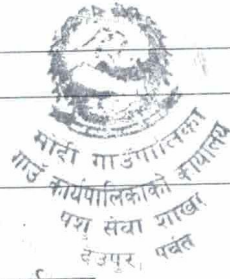 मोदी गाउँपालिका
गाउँ कार्यपालिकाको कार्यालय
पशु सेवा शाखा
देउपुर, पर्वत